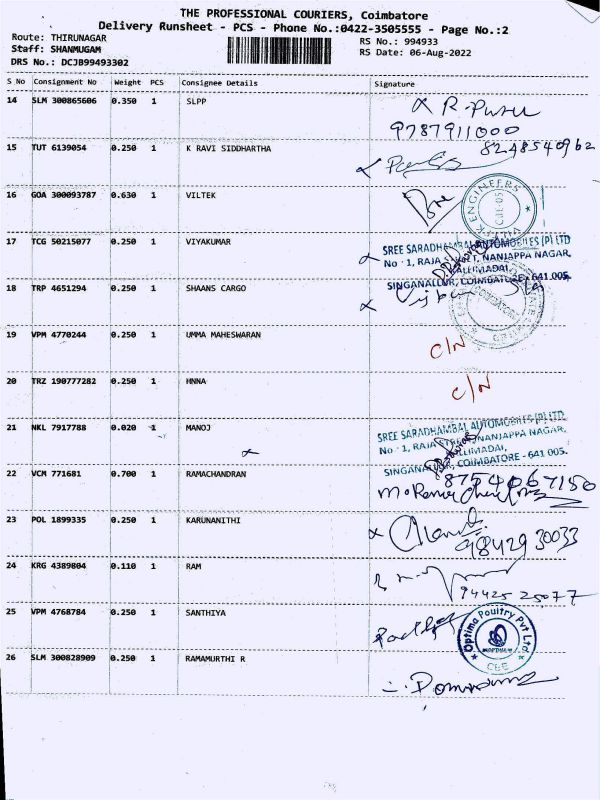 THE PROFESSIONAL COURIERS, Coimbatore
Delivery Runsheet - PCS - Phone No.:0422-3505555 - Page No.:2
Route: THIRUNAGAR
RS No.: 994933
Staff: SHANMUGAM
RS Date: 06-Aug-2022
DRS No.: DCJB99493302
S No Consignment No Weight PCS Consignee Details Signature
14 SLM 300865606 0.350 1 SLPP
9787911000
15 TUT 6139054 0.250 1 K RAVI SIDDHARTHA
8248540962
16 GOA 300093787 0.630 1 VILTEK
ENGINEERS
17 TCG 50215077 0.250 1 VIYAKUMAR
SREE SARADHAMBAL AUTOMOBILES (P) LTD
No : 1, RAJA STREET, NANJAPPA NAGAR,
KALLIMADAI,
SINGANALLUR, COIMBATORE - 641 005.
18 TRP 4651294 0.250 1 SHAANS CARGO
COIMBATORE
19 VPM 4770244 0.250 1 UMMA MAHESWARAN
C/N
20 TRZ 190777282 0.250 1 HNNA
C/N
21 NKL 7917788 0.020 1 MANOJ
SREE SARADHAMBAL AUTOMOBILES (P) LTD.
No : 1, RAJA STREET, NANJAPPA NAGAR,
KALLIMADAI,
SINGANALLUR, COIMBATORE - 641 005.
22 VCM 771681 0.700 1 RAMACHANDRAN
8754067150
23 POL 1899335 0.250 1 KARUNANITHI
9842930033
24 KRG 4389804 0.110 1 RAM
94425 25077
25 VPM 4768784 0.250 1 SANTHIYA
Optima Poultry Pvt Ltd
CBE
26 SLM 300828909 0.250 1 RAMAMURTHI R